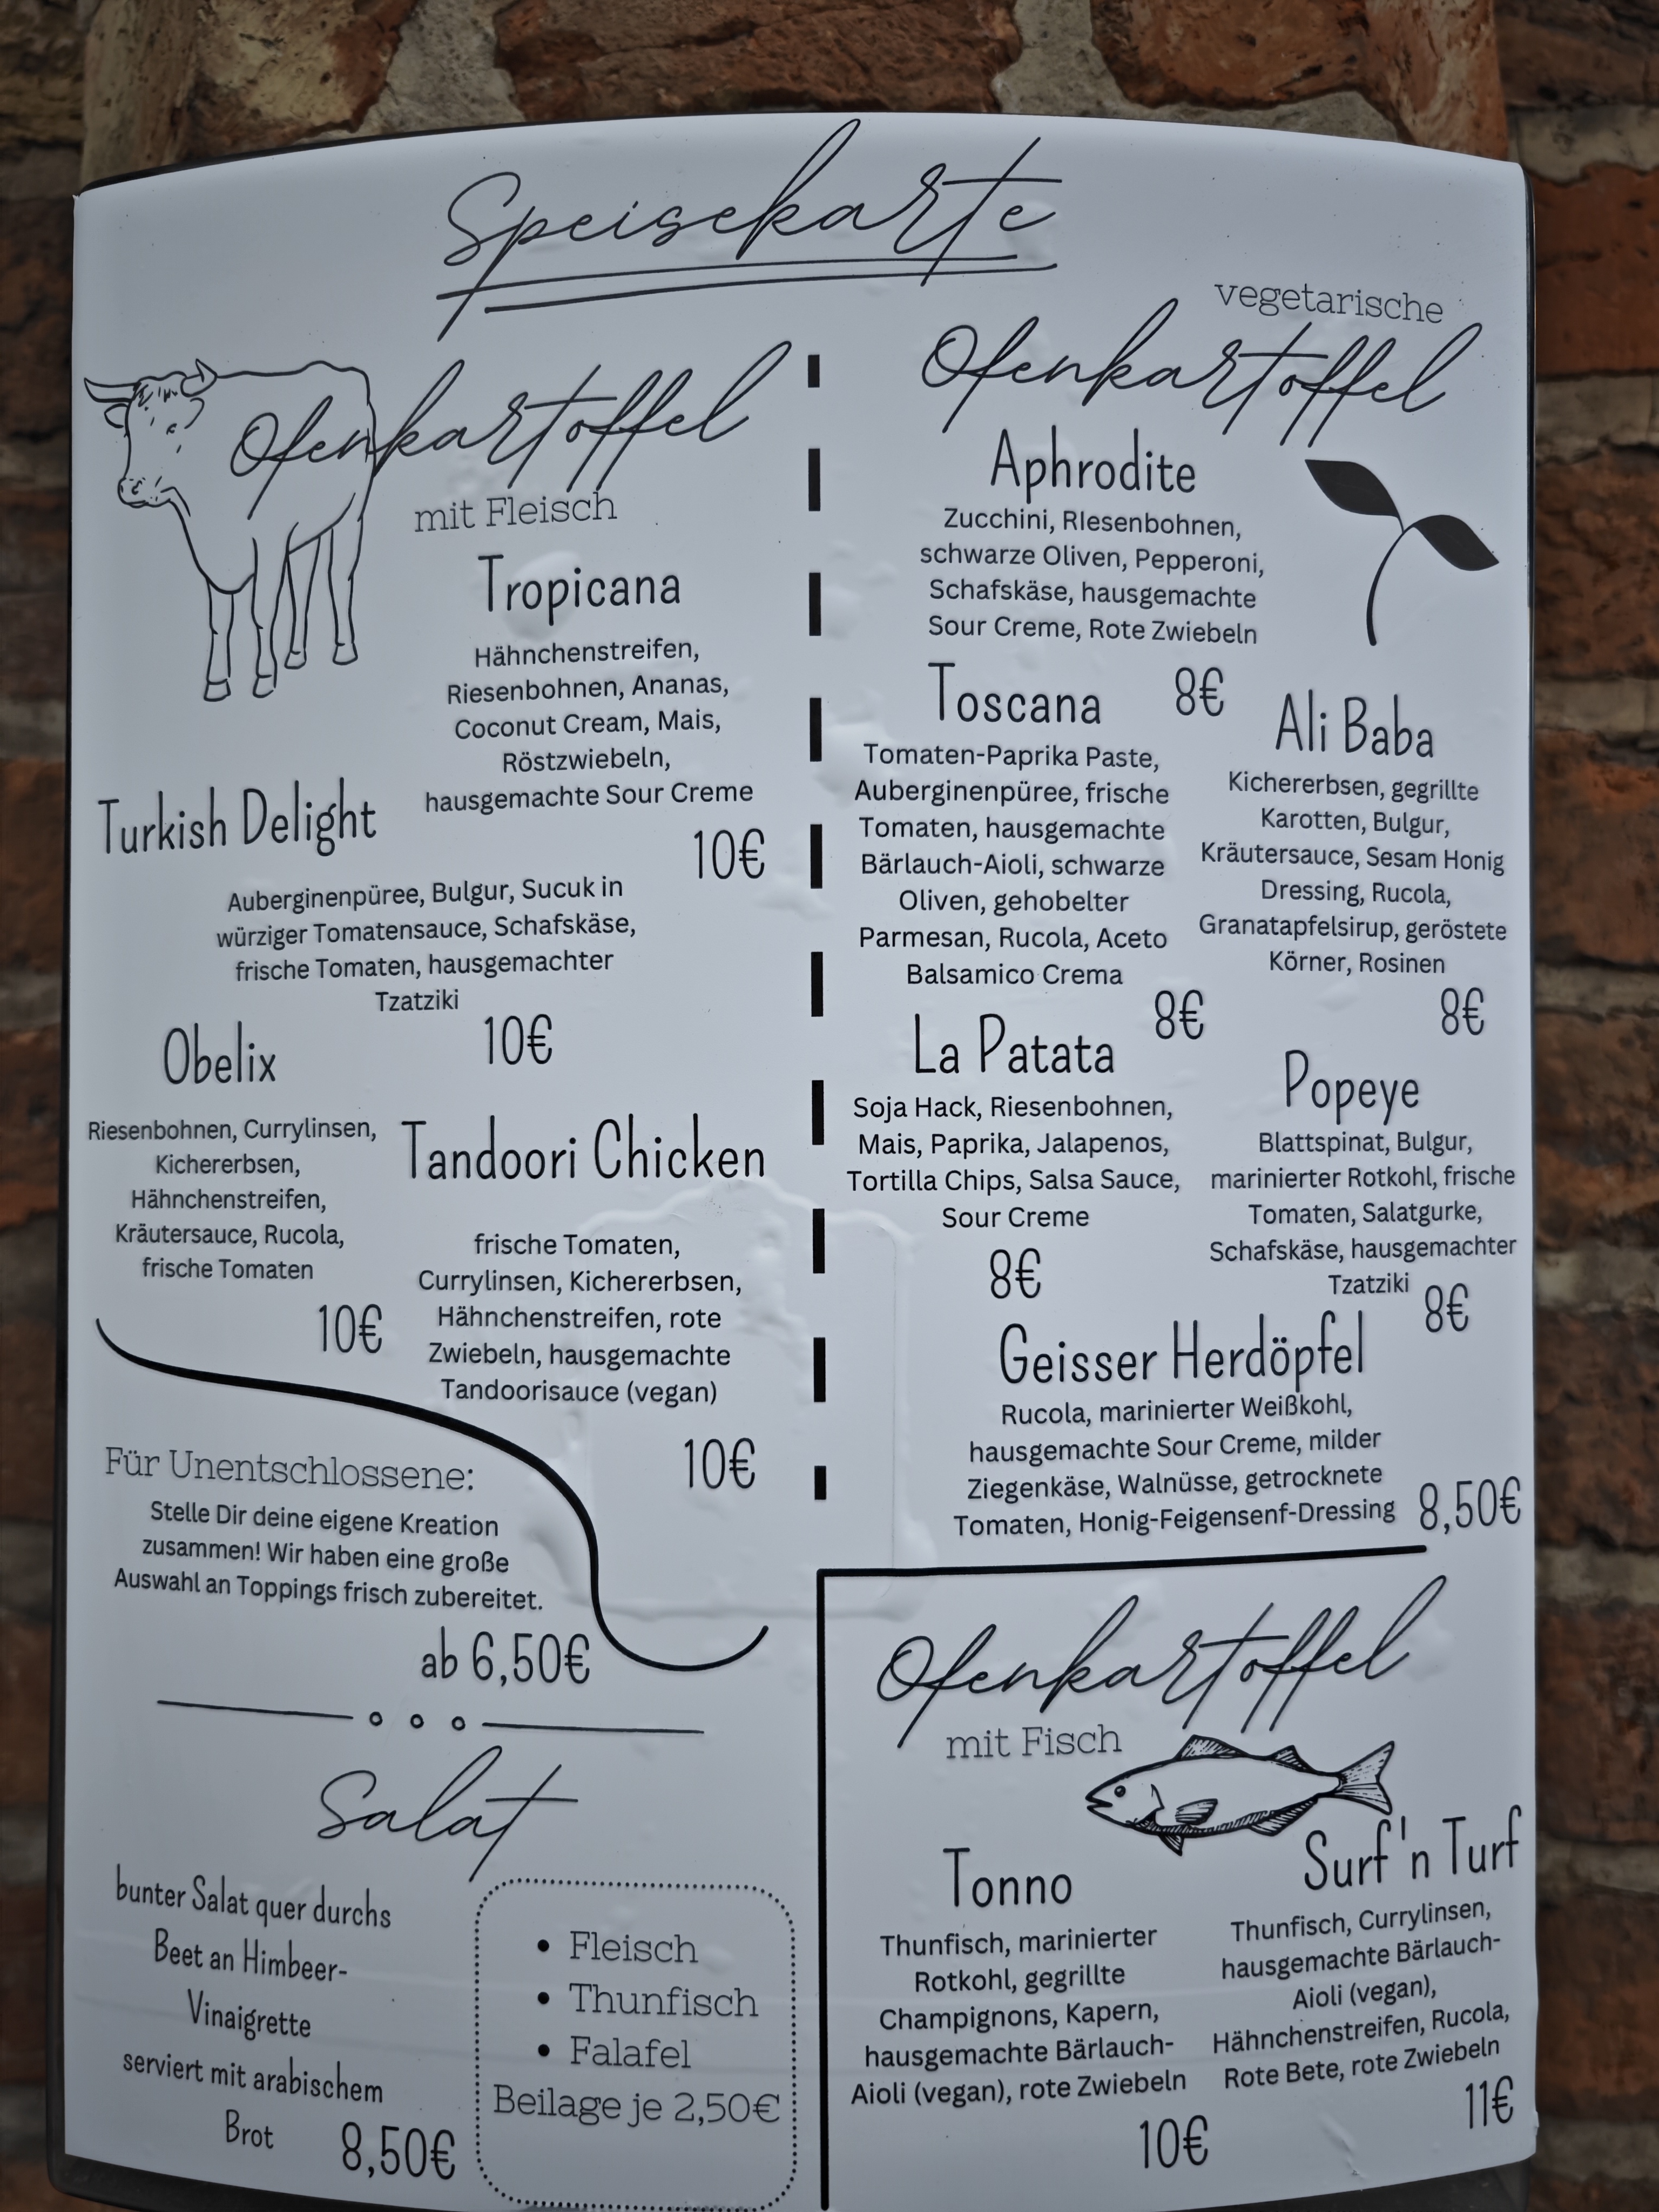 Speisekarte
Ofenkartoffel
mit Fleisch
Tropicana
Hähnchenstreifen,
Riesenbohnen, Ananas,
Coconut Cream, Mais,
Röstzwiebeln,
hausgemachte Sour Creme
10€
Turkish Delight
Auberginenpüree, Bulgur, Sucuk in
würziger Tomatensauce, Schafskäse,
frische Tomaten, hausgemachter
Tzatziki
10€
Obelix
Riesenbohnen, Currylinsen,
Kichererbsen,
Hähnchenstreifen,
Kräutersauce, Rucola,
frische Tomaten
10€
Tandoori Chicken
frische Tomaten,
Currylinsen, Kichererbsen,
Hähnchenstreifen, rote
Zwiebeln, hausgemachte
Tandoorisauce (vegan)
10€
Für Unentschlossene:
Stelle Dir deine eigene Kreation
zusammen! Wir haben eine große
Auswahl an Toppings frisch zubereitet.
ab 6,50€
Salat
bunter Salat quer durchs
Beet an Himbeer-
Vinaigrette
serviert mit arabischem
Brot
8,50€
• Fleisch
• Thunfisch
• Falafel
Beilage je 2,50€
vegetarische
Ofenkartoffel
Aphrodite
Zucchini, RIesenbohnen,
schwarze Oliven, Pepperoni,
Schafskäse, hausgemachte
Sour Creme, Rote Zwiebeln
8€
Toscana
Tomaten-Paprika Paste,
Auberginenpüree, frische
Tomaten, hausgemachte
Bärlauch-Aioli, schwarze
Oliven, gehobelter
Parmesan, Rucola, Aceto
Balsamico Crema
8€
Ali Baba
Kichererbsen, gegrillte
Karotten, Bulgur,
Kräutersauce, Sesam Honig
Dressing, Rucola,
Granatapfelsirup, geröstete
Körner, Rosinen
8€
La Patata
Soja Hack, Riesenbohnen,
Mais, Paprika, Jalapenos,
Tortilla Chips, Salsa Sauce,
Sour Creme
8€
Popeye
Blattspinat, Bulgur,
marinierter Rotkohl, frische
Tomaten, Salatgurke,
Schafskäse, hausgemachter
Tzatziki
8€
Geisser Herdöpfel
Rucola, marinierter Weißkohl,
hausgemachte Sour Creme, milder
Ziegenkäse, Walnüsse, getrocknete
Tomaten, Honig-Feigensenf-Dressing
8,50€
Ofenkartoffel
mit Fisch
Tonno
Thunfisch, marinierter
Rotkohl, gegrillte
Champignons, Kapern,
hausgemachte Bärlauch-
Aioli (vegan), rote Zwiebeln
10€
Surf'n Turf
Thunfisch, Currylinsen,
hausgemachte Bärlauch-
Aioli (vegan),
Hähnchenstreifen, Rucola,
Rote Bete, rote Zwiebeln
11€